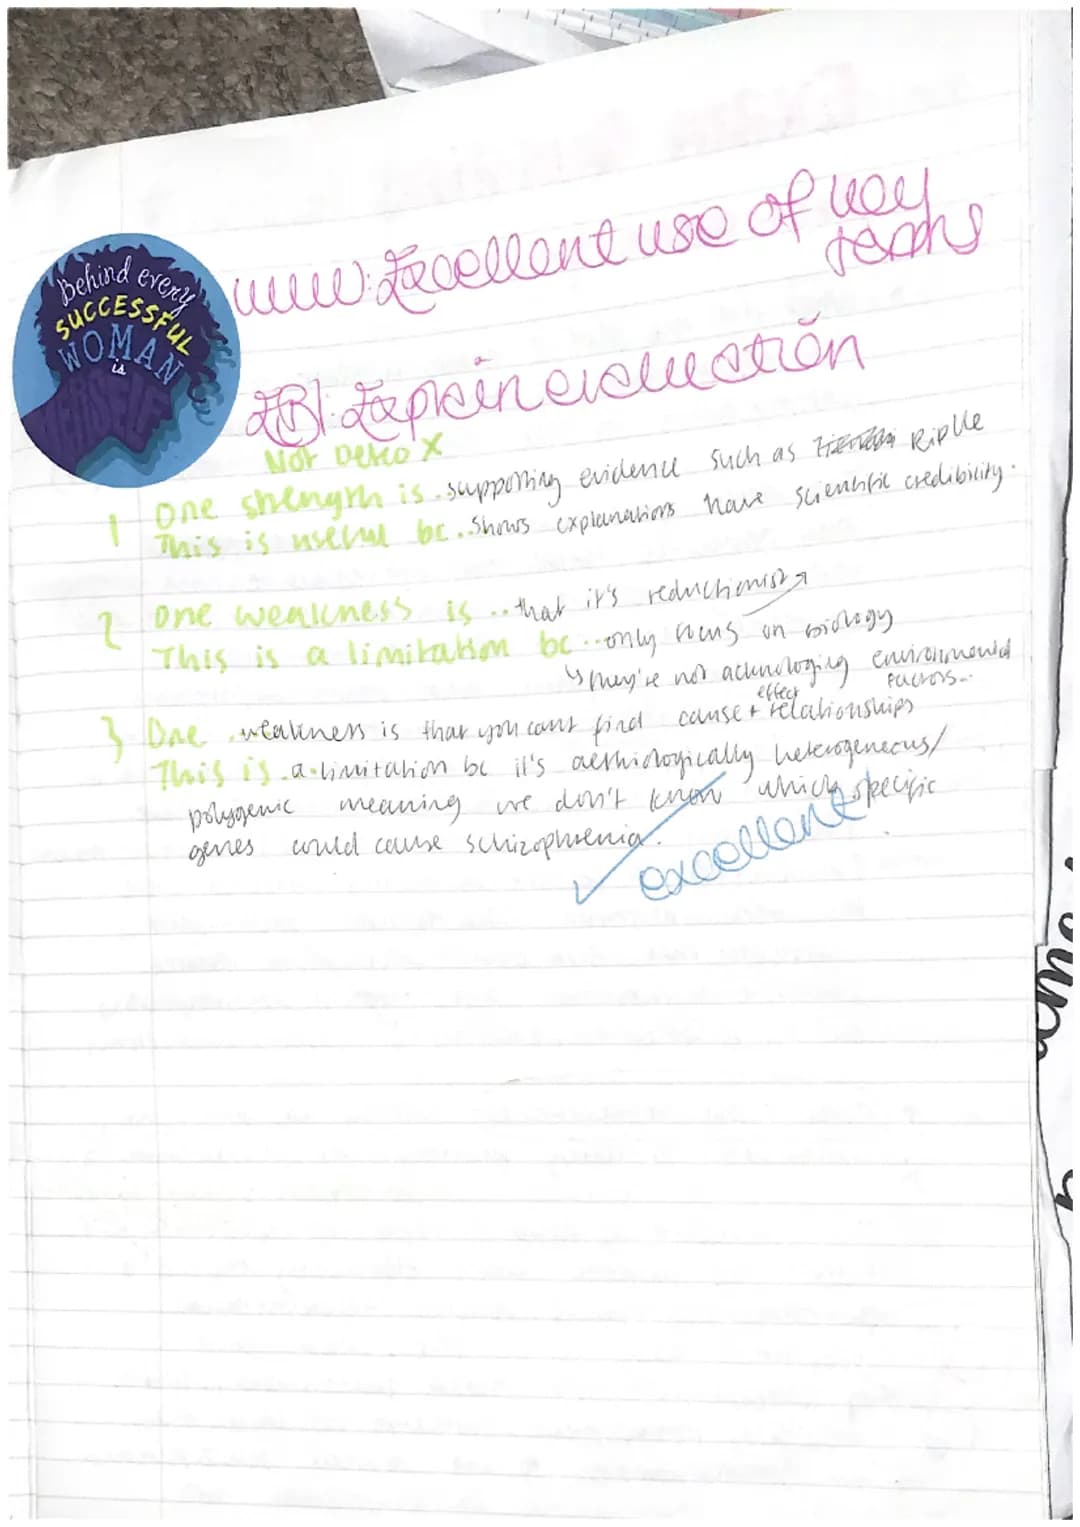 Behind every
SUCCESSFUL
WOMAN
is
HERSELF
www: Excellent use of key
terms
EBI: Explain evaluation
Not Detco X
One strength is .supporting evidence such as Riplle
1 This is useful bc ..shows explanations have scientific credibility.
2 One weakness is ..that it's reductionist
This is a limitation bc ..only focus on biology
↳ they're not acknologing environmental
factors..
effect
3 One .weakness is that you cant find cause + relationships
This is .a.limitation bc it's aethiologically heterogeneous/
polygenic meaning we don't know which specific
genes could cause schizophrenia.
✓ excellent!